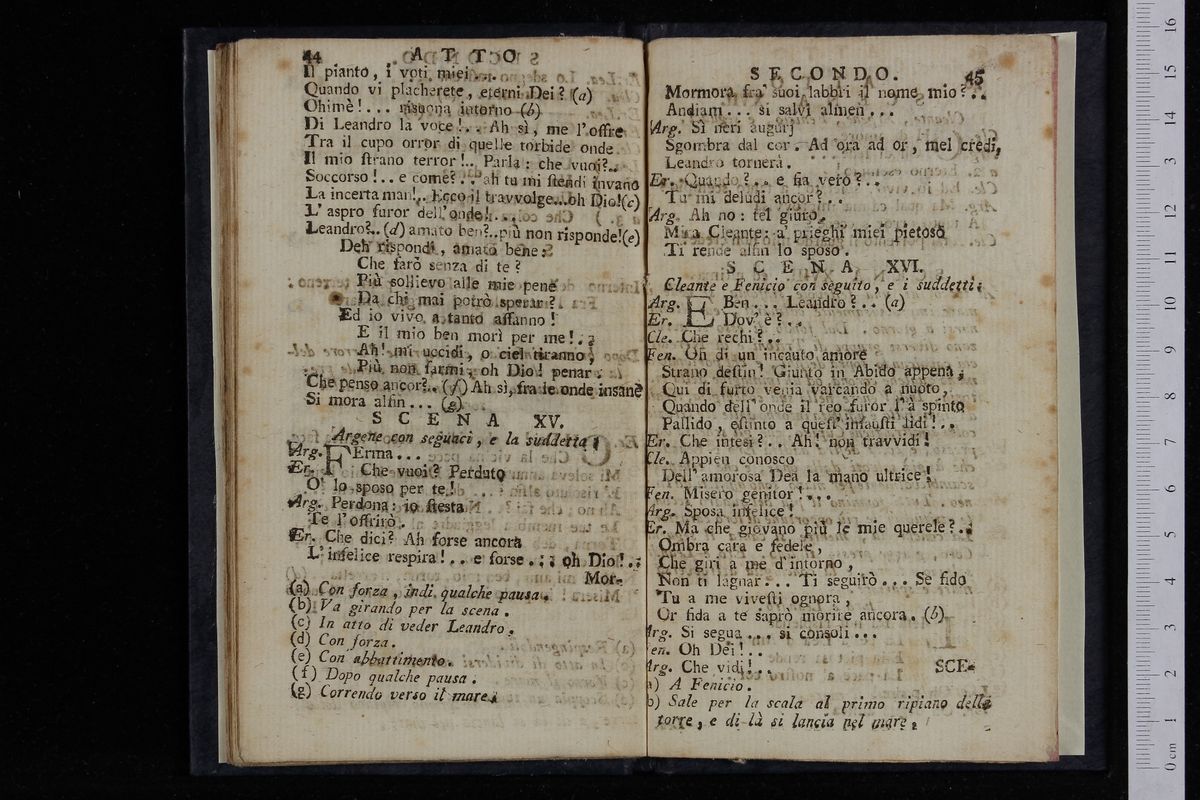 44 ATTO
Il pianto, i voti miei...
Quando vi placherete, eterni Dei? (a)
Ohimè!... risuona intorno (b)
Di Leandro la voce!.. Ah sì, me l'offre
Tra il cupo orror di quelle torbide onde
Il mio ſtrano terror!.. Parla: che vuoi?..
Soccorso!.. e come?.. ah tu mi ſtendi invano
La incerta man!.. Ecco il travvolge...oh Dio!(c)
L'aspro furor dell'onde!...
Leandro?..(d) amato ben?..più non risponde!(e)
Deh rispondi, amato bene:
Che farò senza di te?
Più sollievo alle mie pene
Da chi mai potrò sperar?
Ed io vivo a tanto affanno!
E il mio ben morì per me!..
Ah! mi uccidi, o ciel tiranno,
Più non farmi, oh Dio! penar.
Che penso ancor?..(f) Ah sì, fra le onde insane
Si mora alfin... (g)
SCENA XV.
Argene con seguaci, e la suddetta.
Arg. ERma...
Er. Che vuoi? Perduto
O' lo sposo per te!
Arg. Perdona: io ſtessa
Te l'offrirò.
Er. Che dici? Ah forse ancora
L'infelice respira!.. e forse... oh Dio!..
Mor-
(a) Con forza, indi qualche pausa.
(b) Va girando per la scena.
(c) In atto di veder Leandro.
(d) Con forza.
(e) Con abbattimento.
(f) Dopo qualche pausa.
(g) Correndo verso il mare.
SECONDO. 45
Mormora fra' suoi labbri il nome mio?..
Andiam... si salvi almen...
Arg. Sì neri augurj
Sgombra dal cor. Ad ora ad or, mel credi,
Leandro tornerà.
Er. Quando?.. e fia vero?..
Tu mi deludi ancor?..
Arg. Ah no: tel giuro.
Mira Cleante: a' prieghi miei pietoso
Ti rende alfin lo sposo.
SCENA XVI.
Cleante e Fenicio con seguito, e i suddetti.
Arg. EBen... Leandro?.. (a)
Er. Dov'è?..
Cle. Che rechi?..
Fen. Oh di un incauto amore
Strano deſtin! Giunto in Abido appena,
Qui di furto venia varcando a nuoto,
Quando dell'onde il reo furor l'à spinto
Pallido, eſtinto a queſt'infauſti lidi!..
Er. Che intesi?.. Ah! non travvidi!
Cle. Appien conosco
Dell'amorosa Dea la mano ultrice!
Fen. Misero genitor!...
Arg. Sposa infelice!
Er. Ma che giovano più le mie querele?..
Ombra cara e fedele,
Che giri a me d'intorno,
Non ti lagnar... Ti seguirò... Se fido
Tu a me viveſti ognora,
Or fida a te saprò morire ancora. (b)
Arg. Si segua... si consoli...
Fen. Oh Dei!..
Arg. Che vidi!..
SCE-
a) A Fenicio.
b) Sale per la scala al primo ripiano della
torre, e di là si lancia nel mare.
0 cm 1 2 3 4 5 6 7 8 9 10 11 12 13 14 15 16